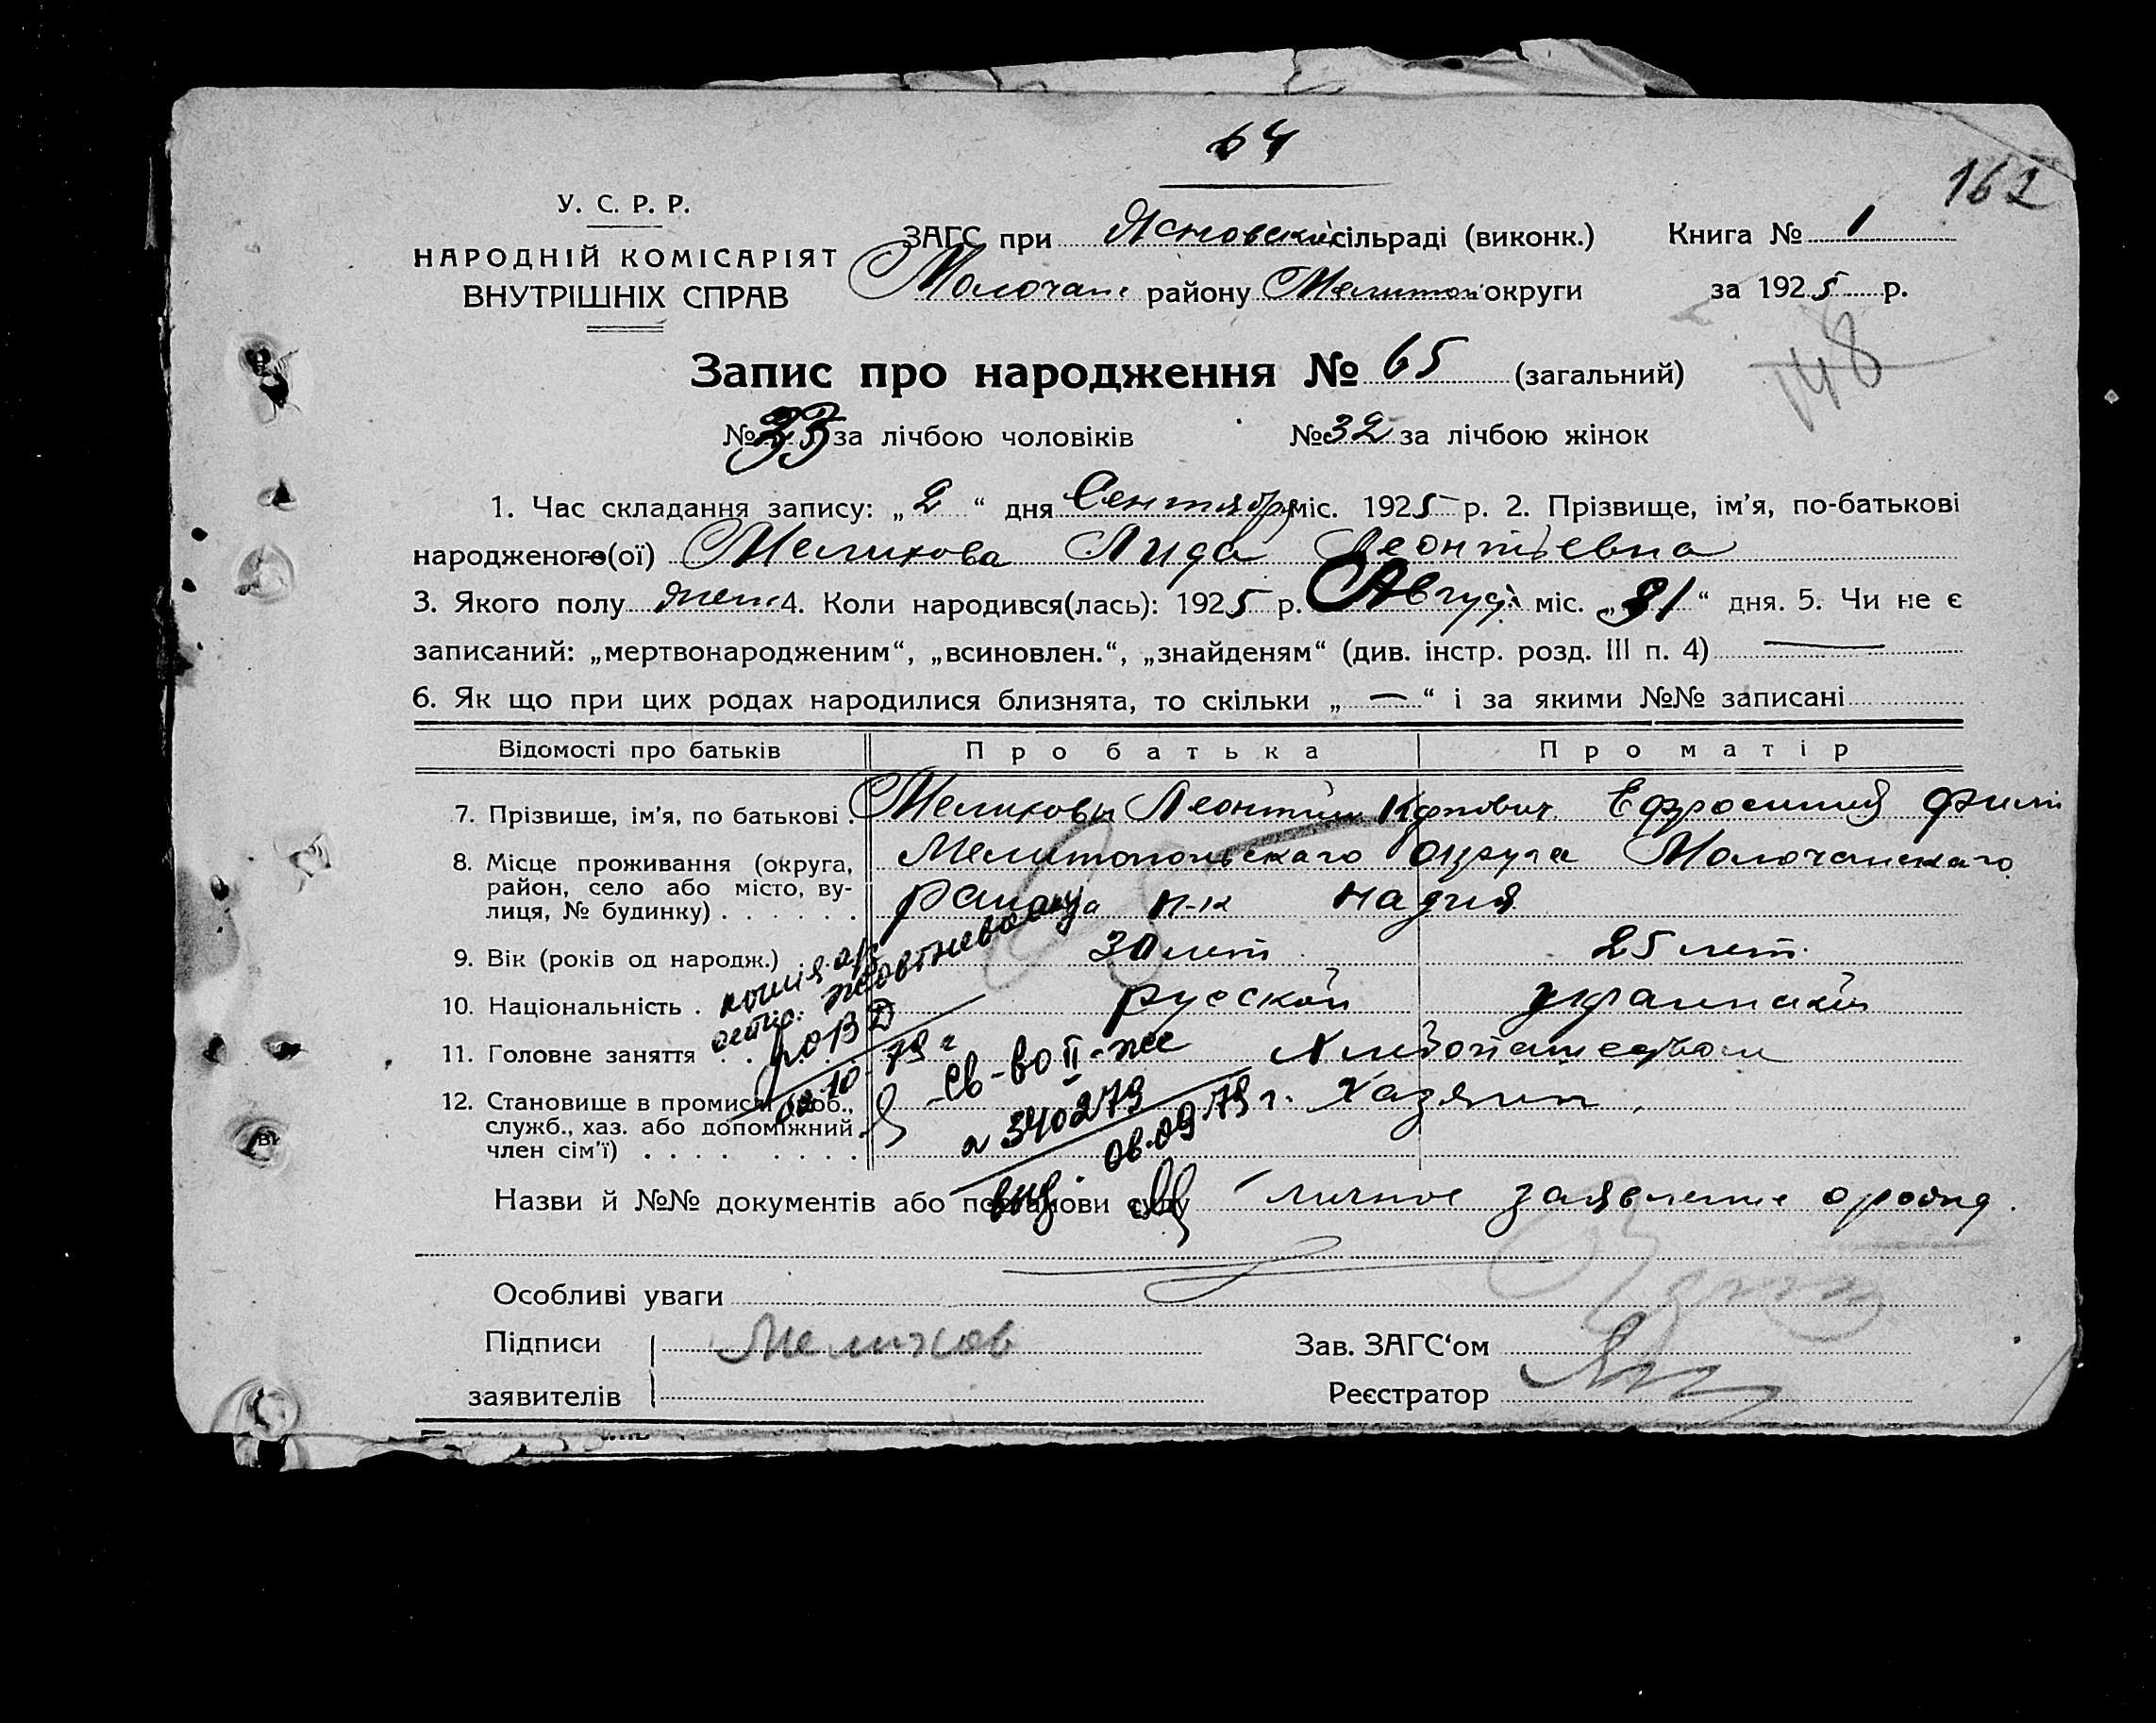 64
162
У. С. Р. Р.
НАРОДНІЙ КОМІСАРІЯТ
ВНУТРІШНІХ СПРАВ
ЗАГС при Ясновській сільраді (виконк.) Книга № 1
Молочан. району Мелитоп. округи за 1925 р.
148
Запис про народження № 65 (загальний)
№ 33 за лічбою чоловіків № 32 за лічбою жінок
1. Час складання запису: „2“ дня Сентября міс. 1925 р. 2. Прізвище, ім’я, по-батькові
народженого(ої) Меликова Лида Леонтьевна
3. Якого полу жен. 4. Коли народився(лась): 1925 р. Август міс. „31“ дня. 5. Чи не є
записаний: „мертвонародженим“, „всиновлен.“, „знайденям“ (див. інстр. розд. III п. 4) —
6. Як що при цих родах народилися близнята, то скільки „—“ і за якими №№ записані
Відомості про батьків Про батька Про матір
7. Прізвище, ім’я, по батькові . Меликовы Леонтий Ефросиния
8. Місце проживання (округа, Мелитопольскаго Округа Молочанскаго
район, село або місто, ву- района надия
лиця, № будинку)
9. Вік (років од народж.) 30 лет 25 лет.
10. Національність . русской
11. Головне заняття Хлебопашеством
12. Становище в промислі (роб., Хазяин
служб., хаз. або допоміжний
член сім’ї)
копія а/з
Жовтневому
РОВД
02.10.79 г
св-во II-жс
340279
06.09.79 г.
Назви й №№ документів або постанови суду личное заявление
Особливі уваги
Підписи Меликов Зав. ЗАГС‘ом
заявителів Реєстратор